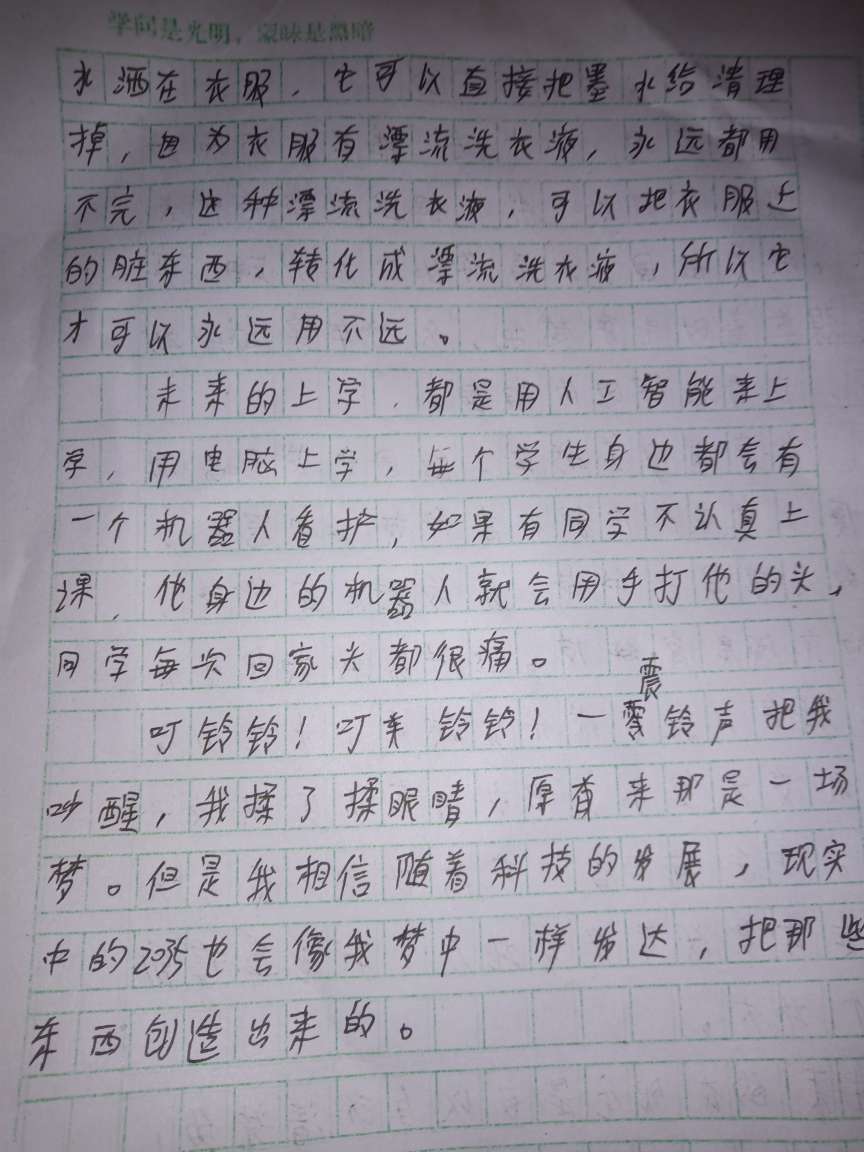 学问是光明，蒙昧是黑暗
水洒在衣服，它可以直接把墨水给清理
掉，因为衣服有漂流洗衣液，永远都用
不完，这种漂流洗衣液，可以把衣服上
的脏东西，转化成漂流洗衣液，所以它
才可以永远用不远。
未来的上学，都是用人工智能来上
学，用电脑上学，每个学生身边都会有
一个机器人看护，如果有同学不认真上
课，他身边的机器人就会用手打他的头，
同学每次回家头都很痛。
震
叮铃铃！叮 铃铃！一零铃声把我
吵醒，我揉了揉眼睛，原 来那是一场
梦。但是我相信随着科技的发展，现实
中的2035也会像我梦中一样发达，把那些
东西创造出来的。